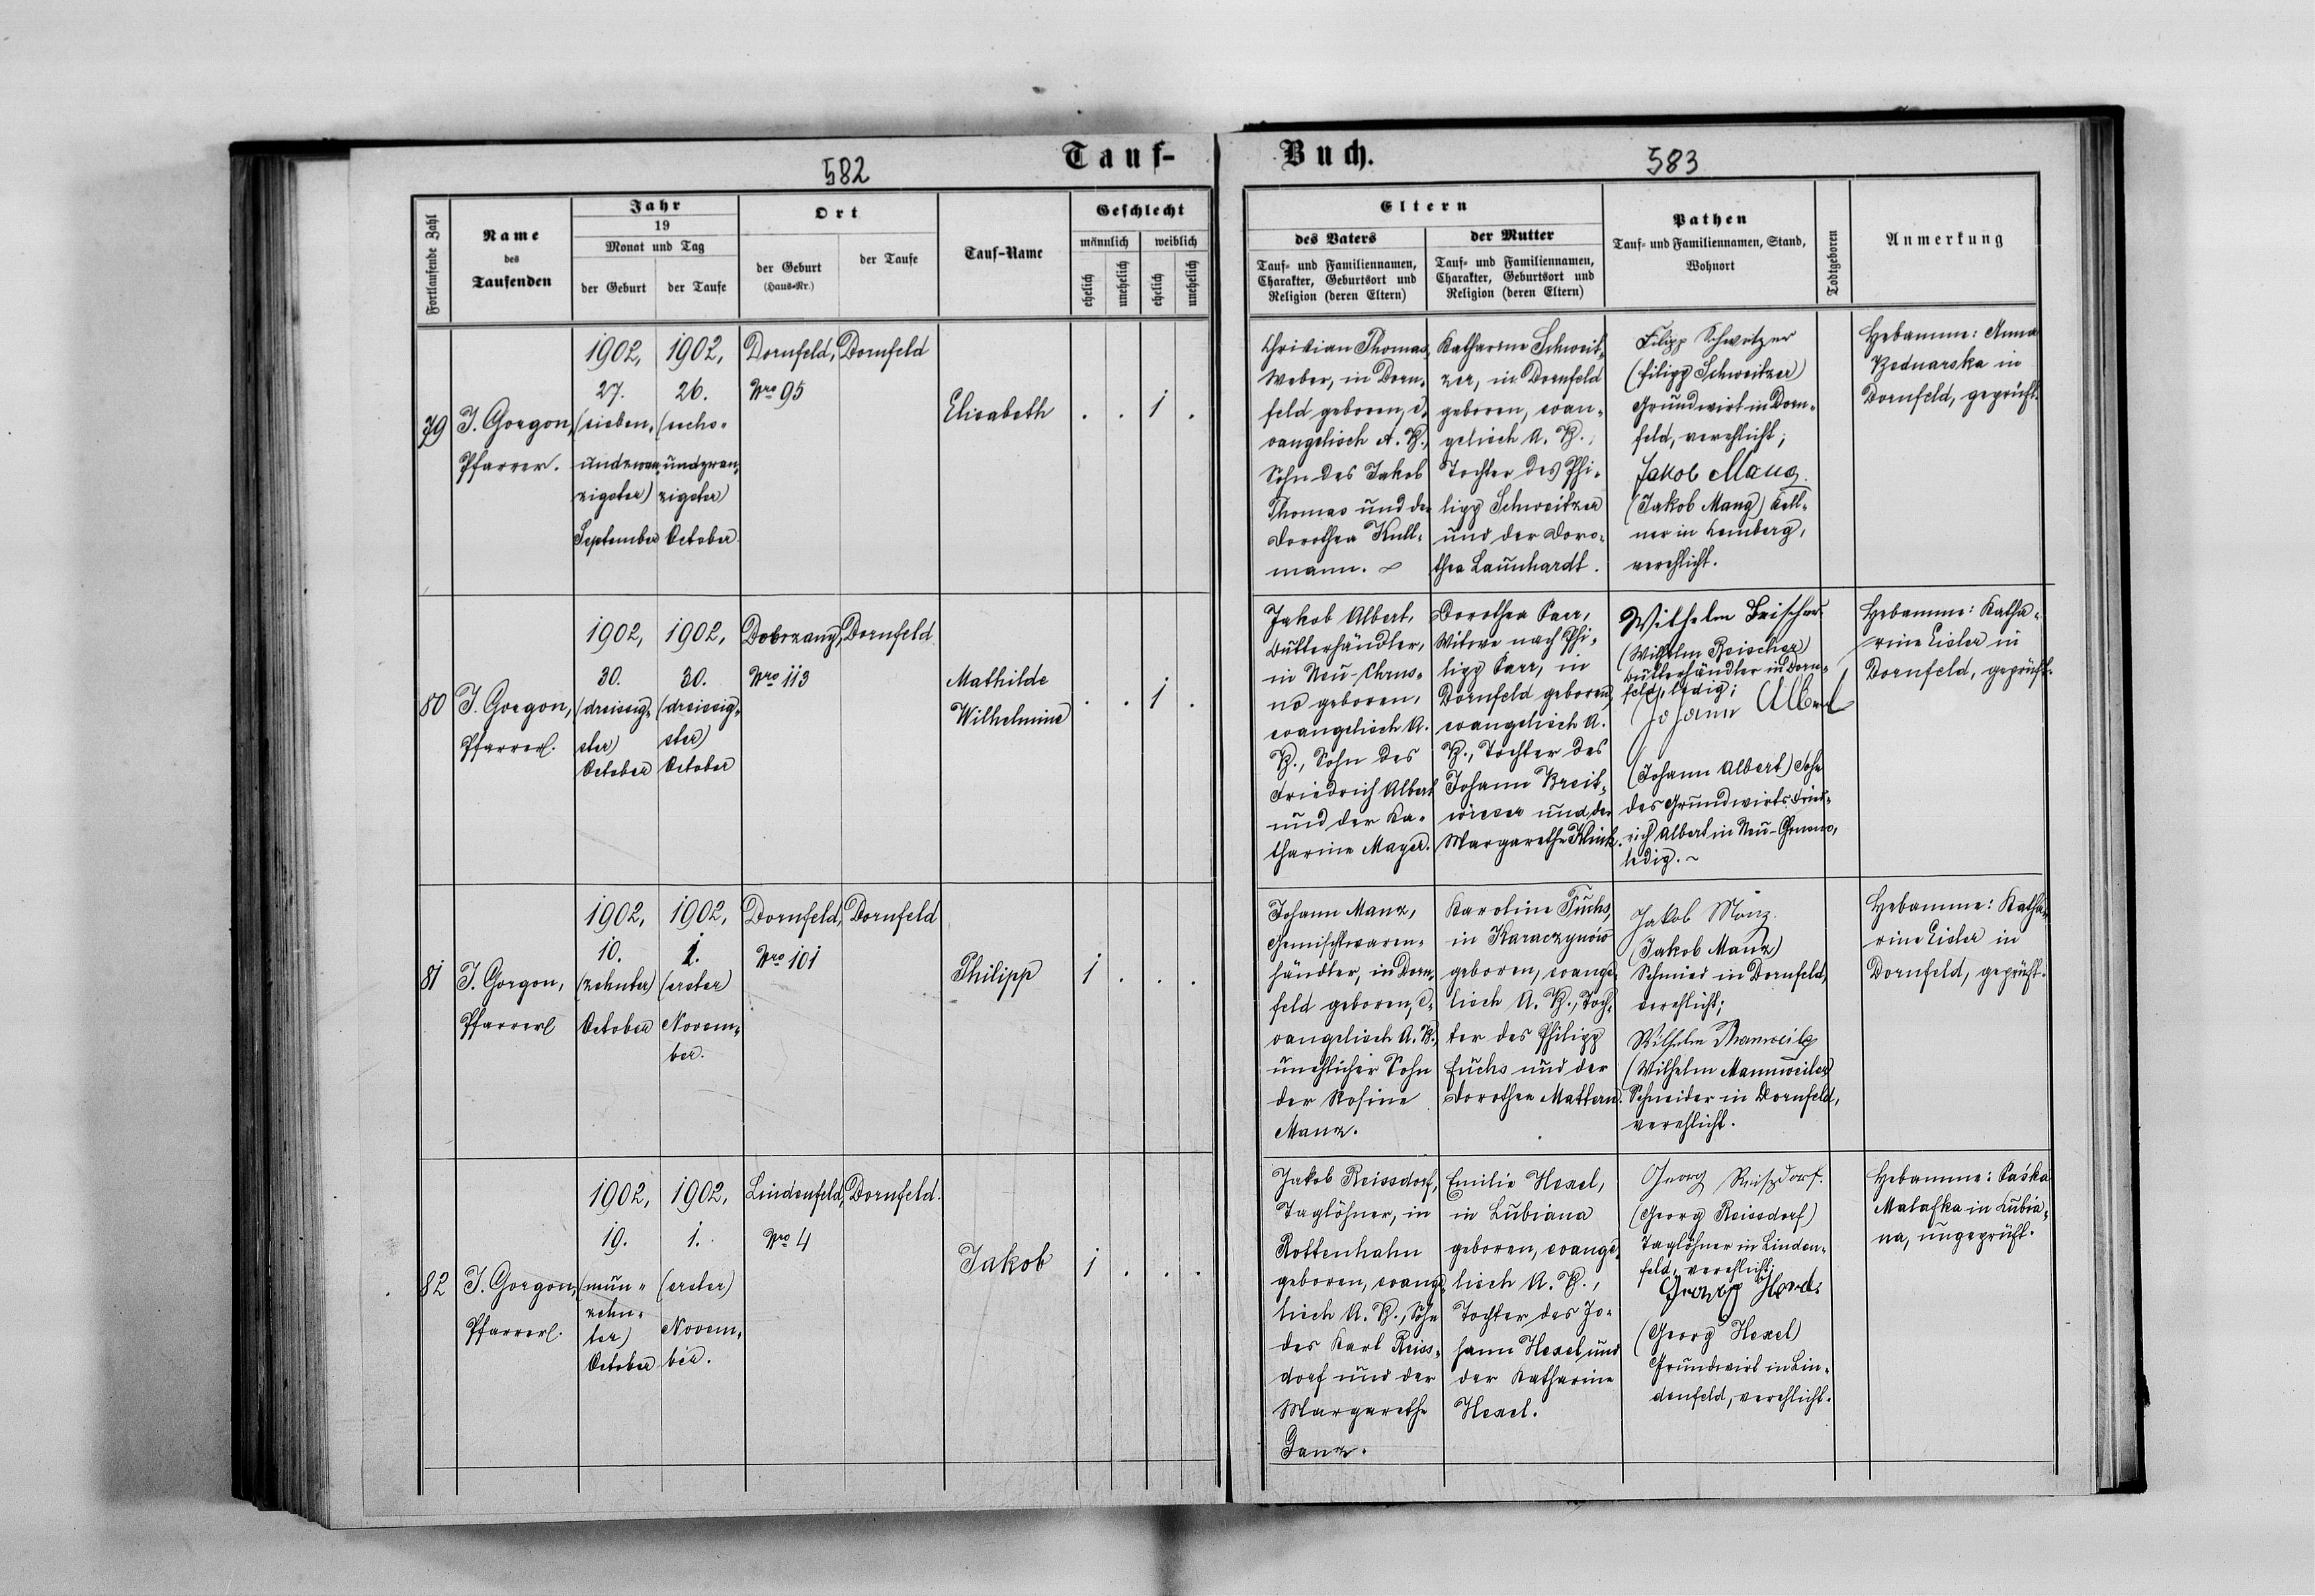 582
Tauf-
Fortlaufende Zahl
Name
des
Taufenden
Jahr
19
Monat und Tag
der Geburt
der Taufe
Ort
der Geburt
(Haus-Nr.)
der Taufe
Tauf-Name
Geschlecht
männlich
weiblich
ehelich
unehelich
ehelich
unehelich
79
J. Gorgon,
Pfarrer.
1902,
27.
(sieben-
undzwan-
zigster)
September
1902,
26.
(sechs-
undzwan-
zigster)
October.
Dornfeld,
Nro 95
Dornfeld
Elisabeth
. . 1 .
80
J. Gorgon,
Pfarrer.
1902,
30.
(dreissig-
ster)
October
1902,
30.
(dreissig-
ster)
October
Dobrzany,
Nro 113
Dornfeld
Mathilde
Wilhelmine
. . 1 .
81
J. Gorgon,
Pfarrer
1902,
10.
(zehnter)
October
1902,
1.
(erster)
Novem-
ber.
Dornfeld,
Nro 101
Dornfeld
Philipp
1 . . .
82
J. Gorgon,
Pfarrer.
1902,
19.
(neun-
zehn-
ter)
October
1902,
1.
(erster)
Novem-
ber.
Lindenfeld,
Nro 4
Dornfeld.
Jakob
1 . . .
Buch.
583
Eltern
des Vaters
Tauf- und Familiennamen,
Charakter, Geburtsort und
Religion (deren Eltern)
der Mutter
Tauf- und Familiennamen,
Charakter, Geburtsort und
Religion (deren Eltern)
Pathen
Tauf- und Familiennamen, Stand,
Wohnort
Todtgeboren
Anmerkung
Christian Thomas
Weber, in Dorn-
feld geboren, e-
vangelisch A. B.,
Sohn des Jakob
Thomas und der
Dorothea Kull-
mann.
Katharine Schweit-
zer, in Dornfeld
geboren, evan-
gelisch A. B.,
Tochter des Phi-
lipp Schweitzer
und der Doro-
thea Launhardt.
Filipp Schwitzer
(Filipp Schweitzer)
Grundwirt in Dorn-
feld, verehlicht;
Jakob Mang.
(Jakob Mang) Kell-
ner in Lemberg,
verehlicht.
Hebamme: Anna
Bednarska in
Dornfeld, geprüft.
Jakob Albert,
Butterhändler,
in Neu-Chrus-
no geboren,
evangelisch A.
B., Sohn des
Friedrich Albert
und der Ka-
tharine Mayer.
Dorothea Karr,
Witwe nach Phi-
lipp Karr, in
Dornfeld geboren,
evangelisch A.
B., Tochter des
Johann Breit-
wieser und der
Margarethe Klink.
Wilhelm
(Wilhelm Reischer)
Butterhändler in Dorn-
feld, ledig;
Johann Albert
(Johann Albert) Sohn
des Grundwirts Fried-
rich Albert in Neu-Chrusno,
ledig.
Hebamme: Katha-
rine Eisler in
Dornfeld, geprüft.
Johann Manz,
Gemischtwaren-
händler, in Dorn-
feld geboren, e-
vangelisch A. B.,
unehlicher Sohn
der Rosine
Manz.
Karoline Fuchs,
in Karaczynów
geboren, evange-
lisch A. B., Toch-
ter des Philipp
Fuchs und der
Dorothea Mattern.
Jakob Manz.
(Jakob Manz)
Schmied in Dornfeld,
verehlicht;
Wilhelm Manweiler
(Wilhelm Mannweiler)
Schneider in Dornfeld,
verehlicht.
Hebamme: Katha-
rine Eisler in
Dornfeld, geprüft.
Jakob Reissdorf,
Taglöhner, in
Rottenhahn
geboren, evange-
lisch A. B., Sohn
des Karl Reiss-
dorf und der
Margarethe
Ganz.
Emilie Hexel,
in Lubiana
geboren, evange-
lisch A. B.,
Tochter des Jo-
hann Hexel und
der Katharine
Hexel.
Georg Reiszdorf.
(Georg Reissdorf)
Taglöhner in Linden-
feld, verehlicht;
Georg
(Georg Hexel)
Grundwirt in Lin-
denfeld, verehlicht.
Hebamme: Kaśka
Malafka in Lubia-
na, ungeprüft.